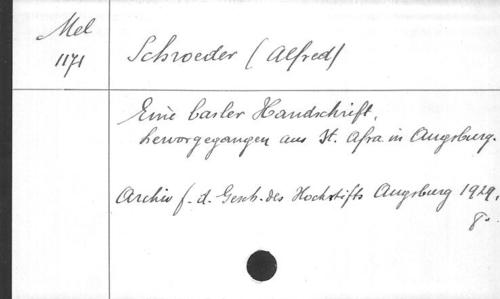 Mel
1171
Schroeder (Alfred)
Eine basler Handschrift,
hervorgegangen aus St. Afra in Augsburg.
Archiv f. d. Gesch. des Hochstifts Augsburg 1929.
8°.